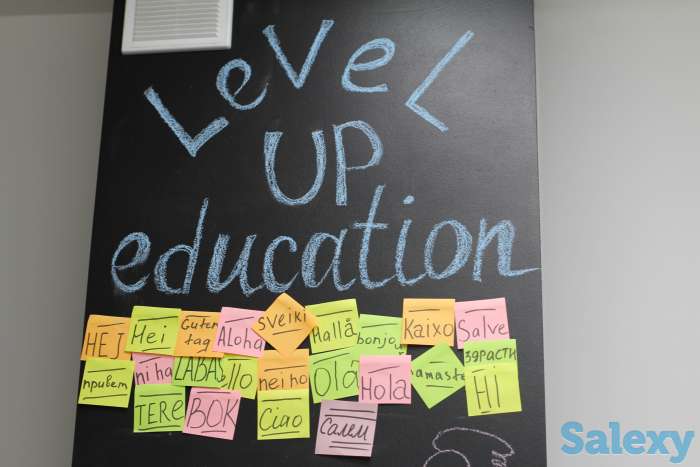 Level
UP
education
HEJ
Hei
Guten
tag
Aloha
sveiki
Hallå
bonjou
Kaixo
Salve
привет
ni ha
LABAS
ello
nei ho
Olá
Hola
namaste
здрасти
HI
TERE
BOK
Ciao
Салем
Salexy